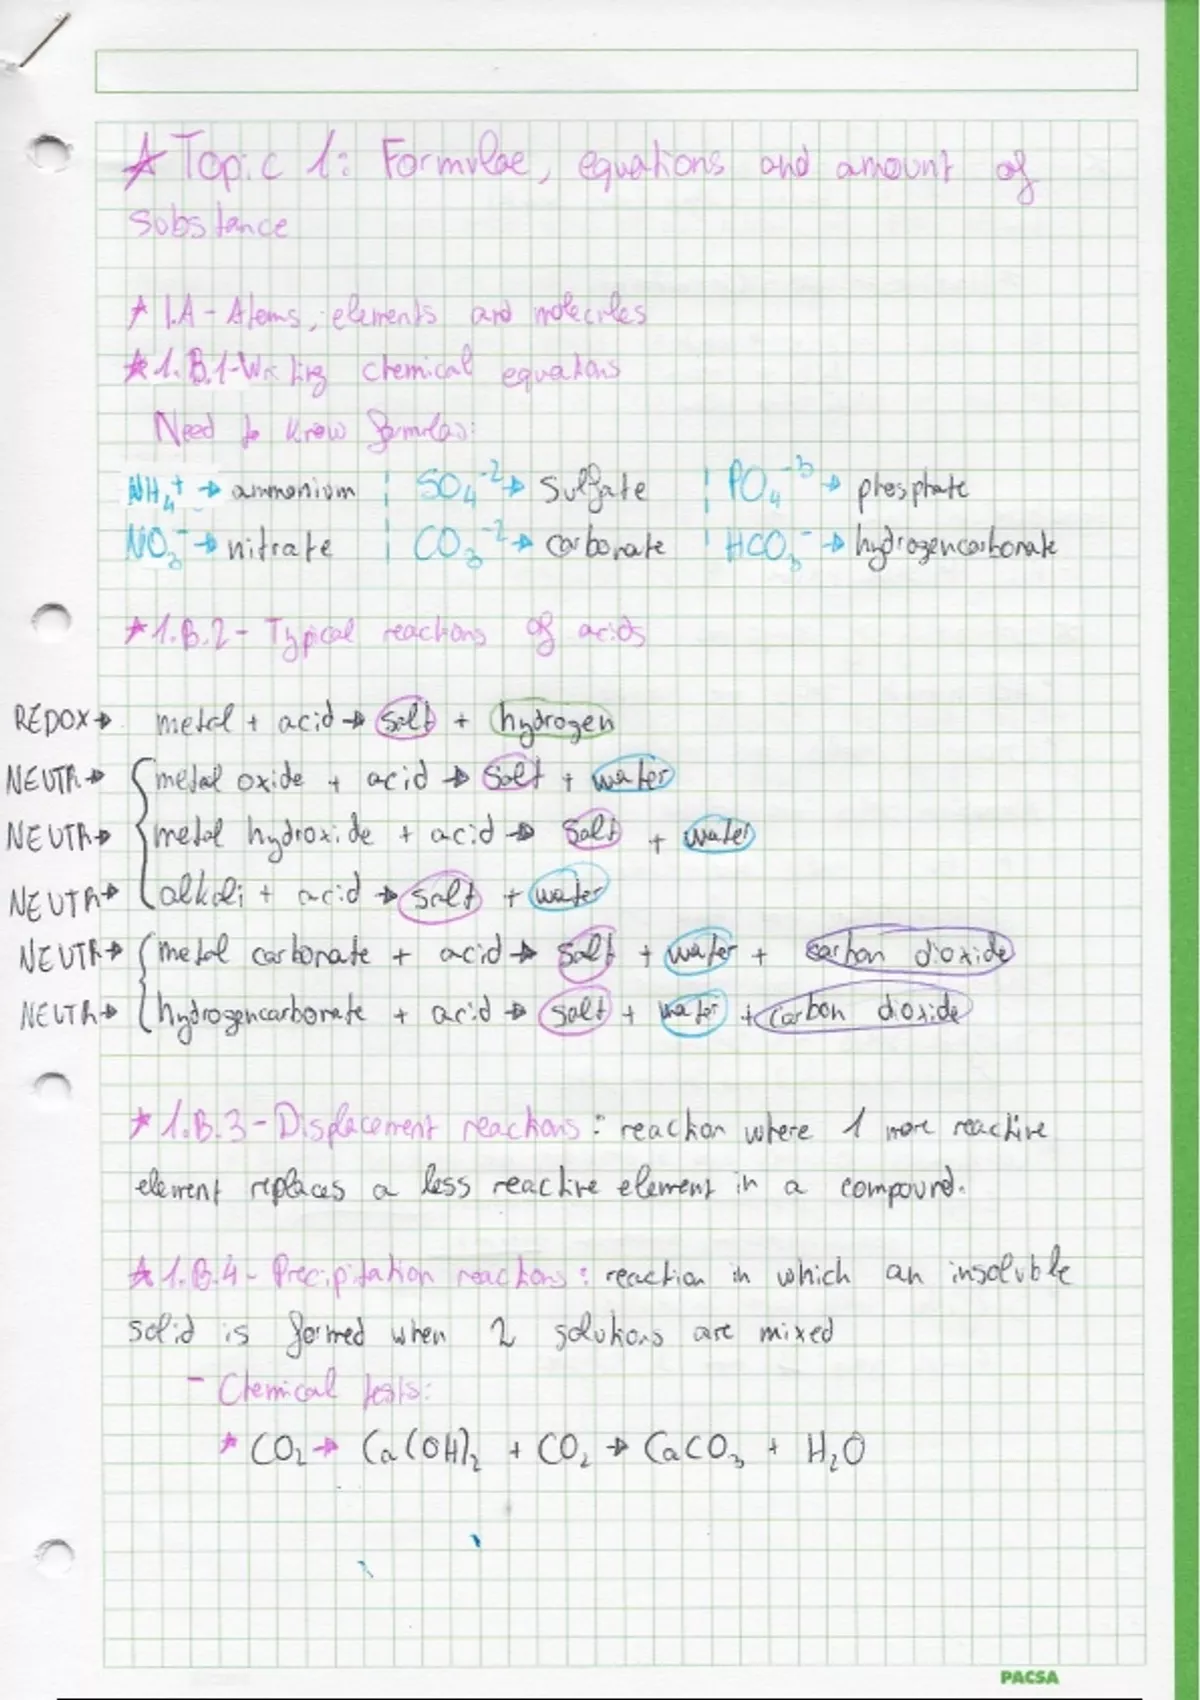 ★ Topic 1: Formulae, equations and amount of
substance
★ 1.A - Atoms, elements and molecules
★ 1.B.1 - Writing chemical equations
Need to know formulas:
NH₄⁺ → ammonium ¦ SO₄⁻² → sulfate ¦ PO₄⁻³ → phosphate
NO₃⁻ → nitrate ¦ CO₃⁻² → carbonate ¦ HCO₃⁻ → hydrogencarbonate
★ 1.B.2 - Typical reactions of acids
REDOX → metal + acid → salt + hydrogen
NEUTR → metal oxide + acid → salt + water
NEUTR → metal hydroxide + acid → salt + water
NEUTR → alkali + acid → salt + water
NEUTR → metal carbonate + acid → salt + water + carbon dioxide
NEUTR → hydrogencarbonate + acid → salt + water + carbon dioxide
★ 1.B.3 - Displacement reactions: reaction where 1 more reactive
element replaces a less reactive element in a compound.
★ 1.B.4 - Precipitation reactions: reaction in which an insoluble
solid is formed when 2 solutions are mixed
- Chemical tests:
★ CO₂ → Ca(OH)₂ + CO₂ → CaCO₃ + H₂O
PACSA